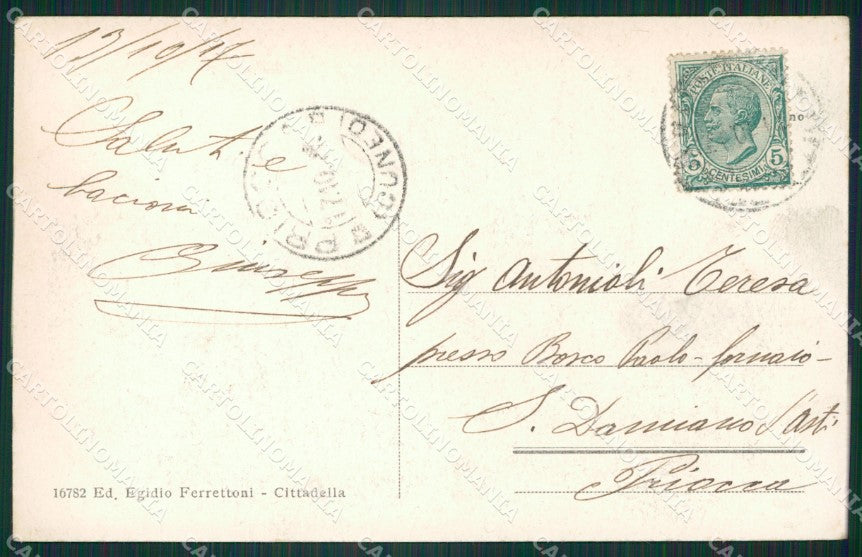 13/10/17
Saluti e
bacioni
Giuseppe
POSTE ITALIANE
5 CENTESIMI 5
PRIOCCA (CUNEO)
Sig Antonioli Teresa
presso Bosco Paolo - fornaio -
S. Damiano d'Asti
Priocca
16782 Ed. Egidio Ferrettoni - Cittadella
CARTOLINOMANIA